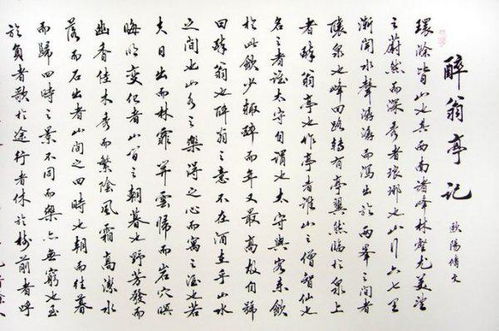 醉翁亭記
歐陽脩文
環滁皆山也其西南諸峰林壑尤美望
之蔚然而深秀者琅琊也山行六七里
漸聞水聲潺潺而瀉出於兩峰之間者
釀泉也峰回路轉有亭翼然臨於泉上
者醉翁亭也作亭者誰山之僧智仙也
名之者誰太守自謂也太守與客來飲
於此飲少輒醉而年又最高故自號
曰醉翁也醉翁之意不在酒在乎山水
之間也山水之樂得之心而寓之酒也若
夫日出而林霏開雲歸而岩穴暝
晦明變化者山間之朝暮也野芳發而
幽香佳木秀而繁陰風霜高潔水
落而石出者山間之四時也朝而往暮
而歸四時之景不同而樂亦無窮也至
於負者歌於途行者休於樹前者呼